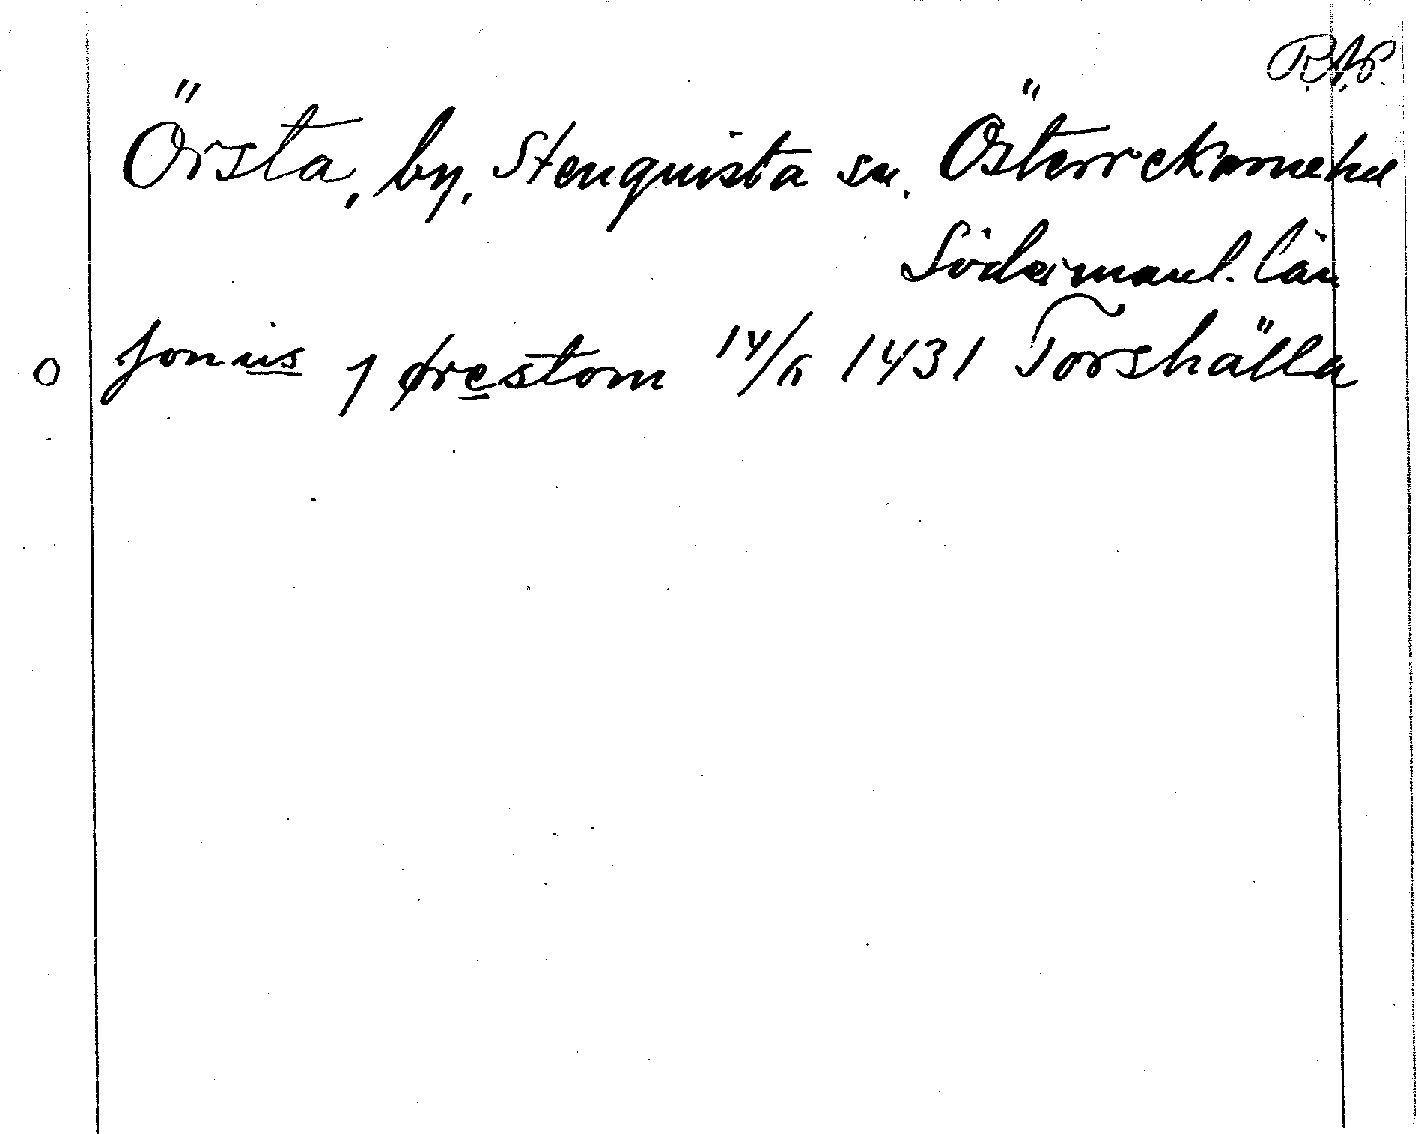 R.A.P.
Örsta, by, Stenquista sn. Österrekarnehd
Södermanl. län
o jonus j ørestom 14/6 1431 Torshälla